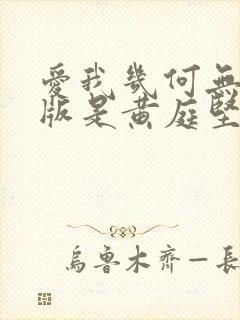 愛我幾何無
版是黄庭堅
烏魯木齊一長